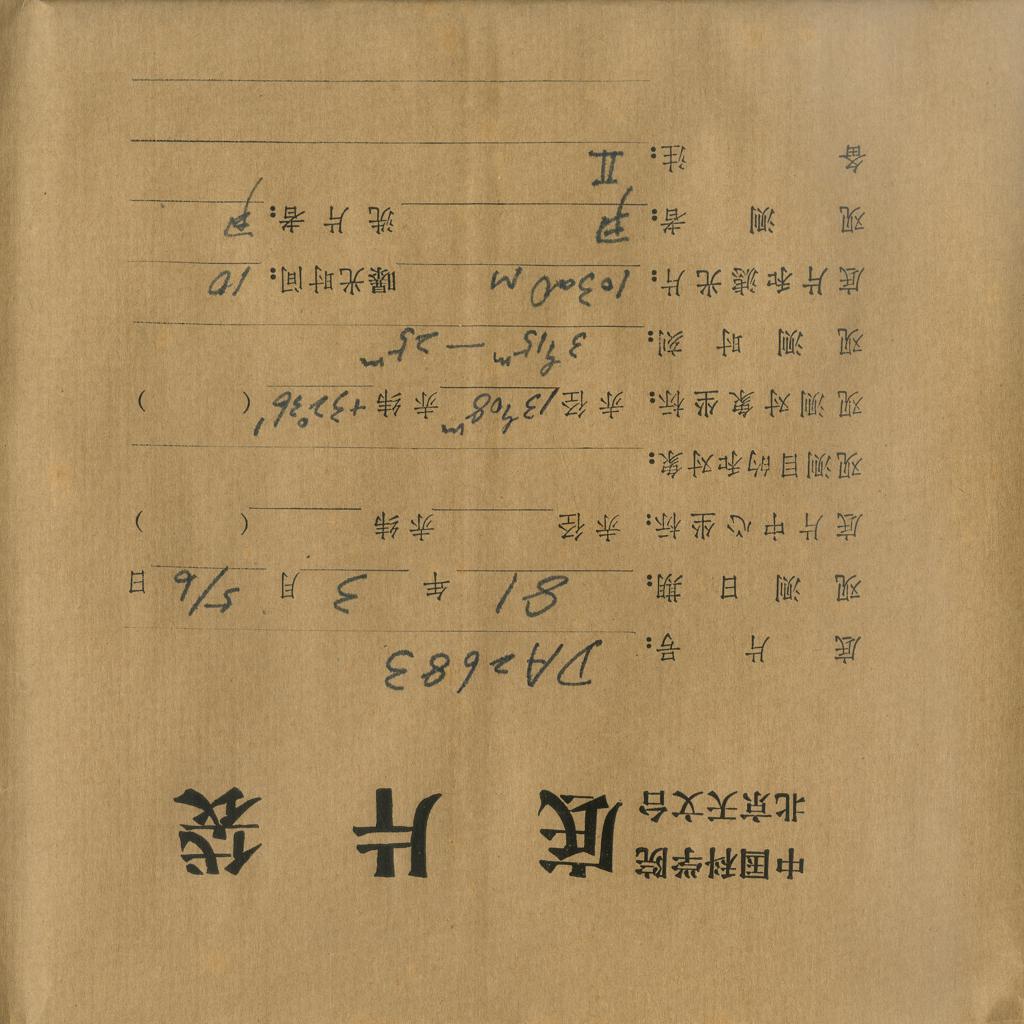 中国科学院
北京天文台
底片袋
底片号: DA2683
观测日期: 81年3月5/6日
底片中心坐标: 赤径 赤纬 ( )
观测目的和对象:
观测对象坐标: 赤径13ʰ08ᵐ赤纬+32°36′( )
观测时刻: 3ʰ15ᵐ—25ᵐ
底片和滤光片: 103aO M 曝光时间: 10
观测者: 洗片者:
备注: II